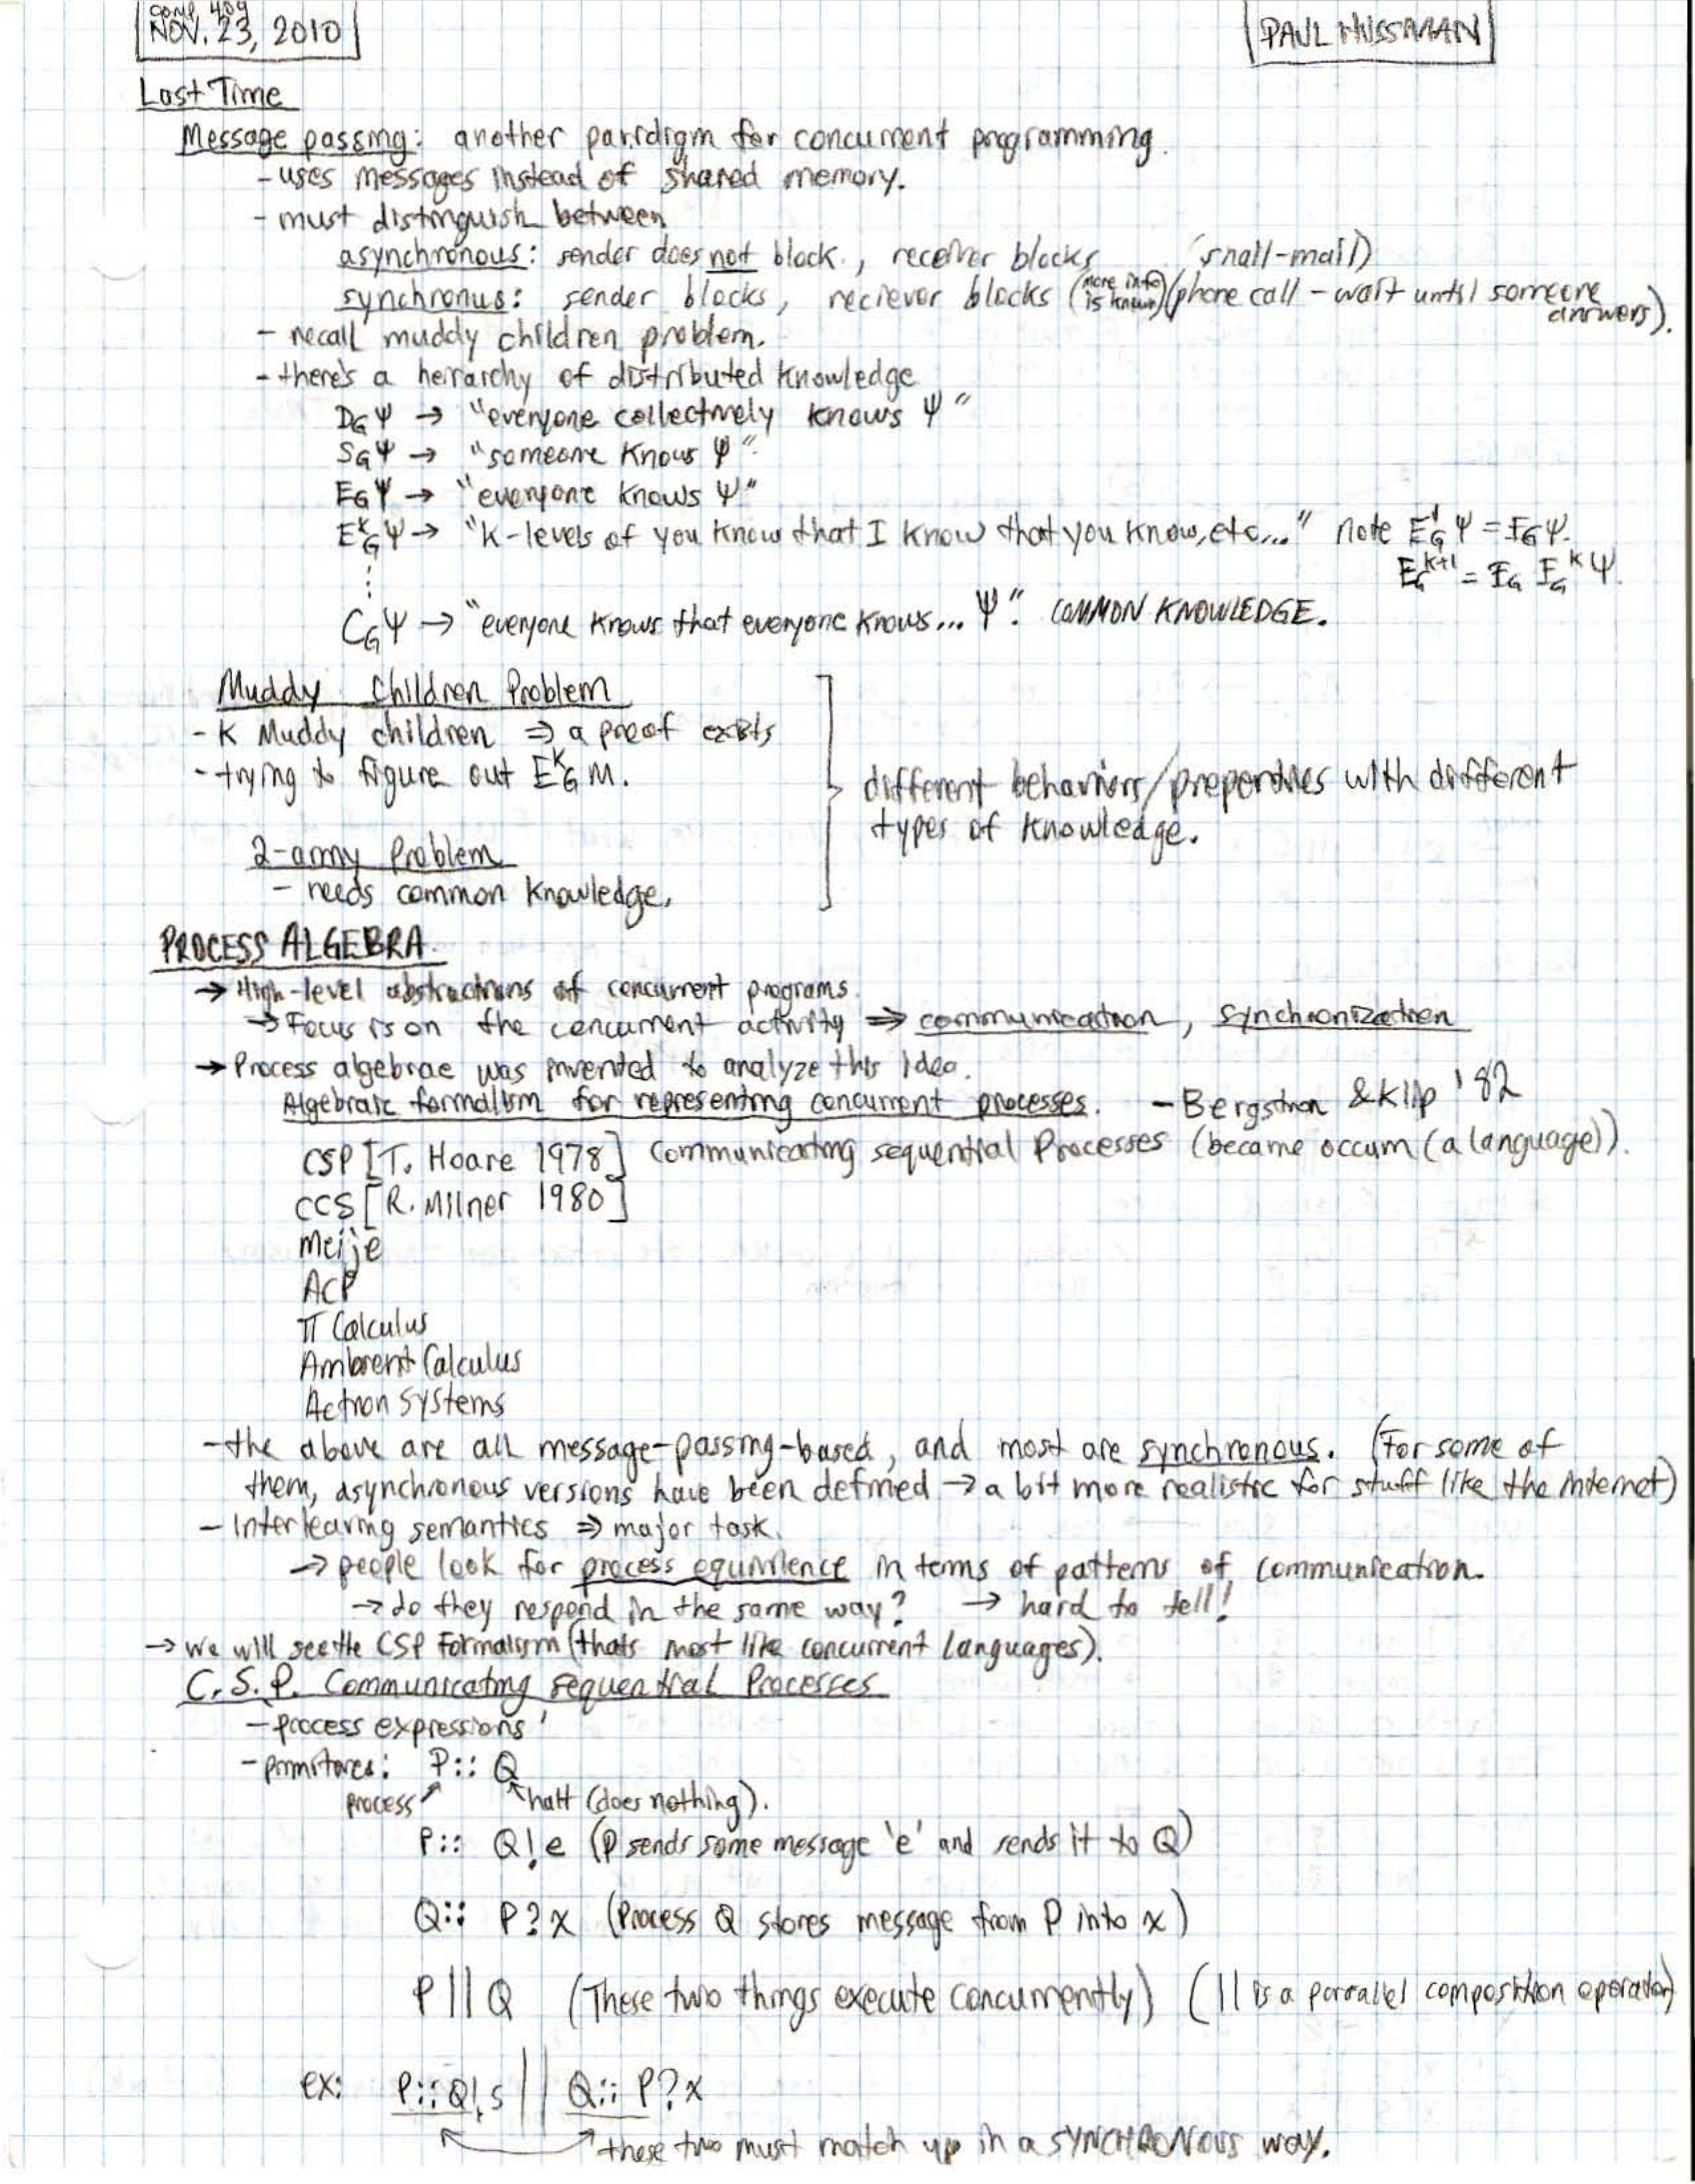 COMP 409
NOV. 23, 2010
PAUL HUSSMAN
Last Time
Message passing: another paradigm for concurrent programming.
- uses messages instead of shared memory.
- must distinguish between
asynchronous: sender does not block, receiver blocks (snail-mail)
synchronus: sender blocks, reciever blocks (more info is known) (phone call - wait until someone answers).
- recall muddy children problem.
- there's a heirarchy of distributed knowledge
D_G Ψ → "everyone collectively knows Ψ"
S_G Ψ → "someone knows Ψ".
E_G Ψ → "everyone knows Ψ"
E^K_G Ψ → "K-levels of you know that I know that you know, etc..." note E^1_G Ψ = E_G Ψ.
⋮ E_G^{K+1} = E_G E_G^K Ψ.
C_G Ψ → "everyone knows that everyone knows... Ψ". COMMON KNOWLEDGE.
Muddy Children Problem
- K Muddy children ⇒ a proof exists
- trying to figure out E^K_G M.
different behaviors/properties with different
types of knowledge.
2-army Problem
- needs common knowledge.
PROCESS ALGEBRA
→ High-level abstractions of concurrent programs.
→ Focus is on the concurrent activity ⇒ communication, synchronization
→ Process algebrae was invented to analyze this idea.
Algebraic formalism for representing concurrent processes. - Bergstra & Klip '82
CSP [T. Hoare 1978] Communicating sequential Processes (became occum (a language)).
CCS [R. Milner 1980]
Meije
ACP
π Calculus
Ambient Calculus
Action Systems
- the above are all message-passing-based, and most are synchronous. (For some of
them, asynchronous versions have been defined → a bit more realistic for stuff like the internet)
- Interleaving semantics ⇒ major task.
→ people look for process equivilence in terms of patterns of communication.
→ do they respond in the same way? → hard to tell!
→ We will see the CSP Formalism (thats most like concurrent languages).
C.S.P. Communicating Sequential Processes
- process expressions
- primitives: P:: Q
process halt (does nothing).
P:: Q!e (P sends some message 'e' and sends it to Q)
Q:: P?x (Process Q stores message from P into x)
P || Q (These two things execute concurrently) (|| is a parrallel composition operator)
ex: P::Q!s || Q:: P?x
these two must match up in a SYNCHRONOUS way.